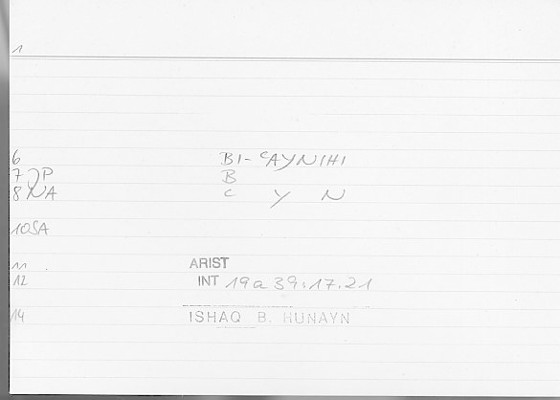 1
6 BI-ʿAYNIHI
7)P B
8)NA ʿ Y N
10SA
11 ARIST
12 INT 19a39:17.21
14 ISHAQ B. HUNAYN